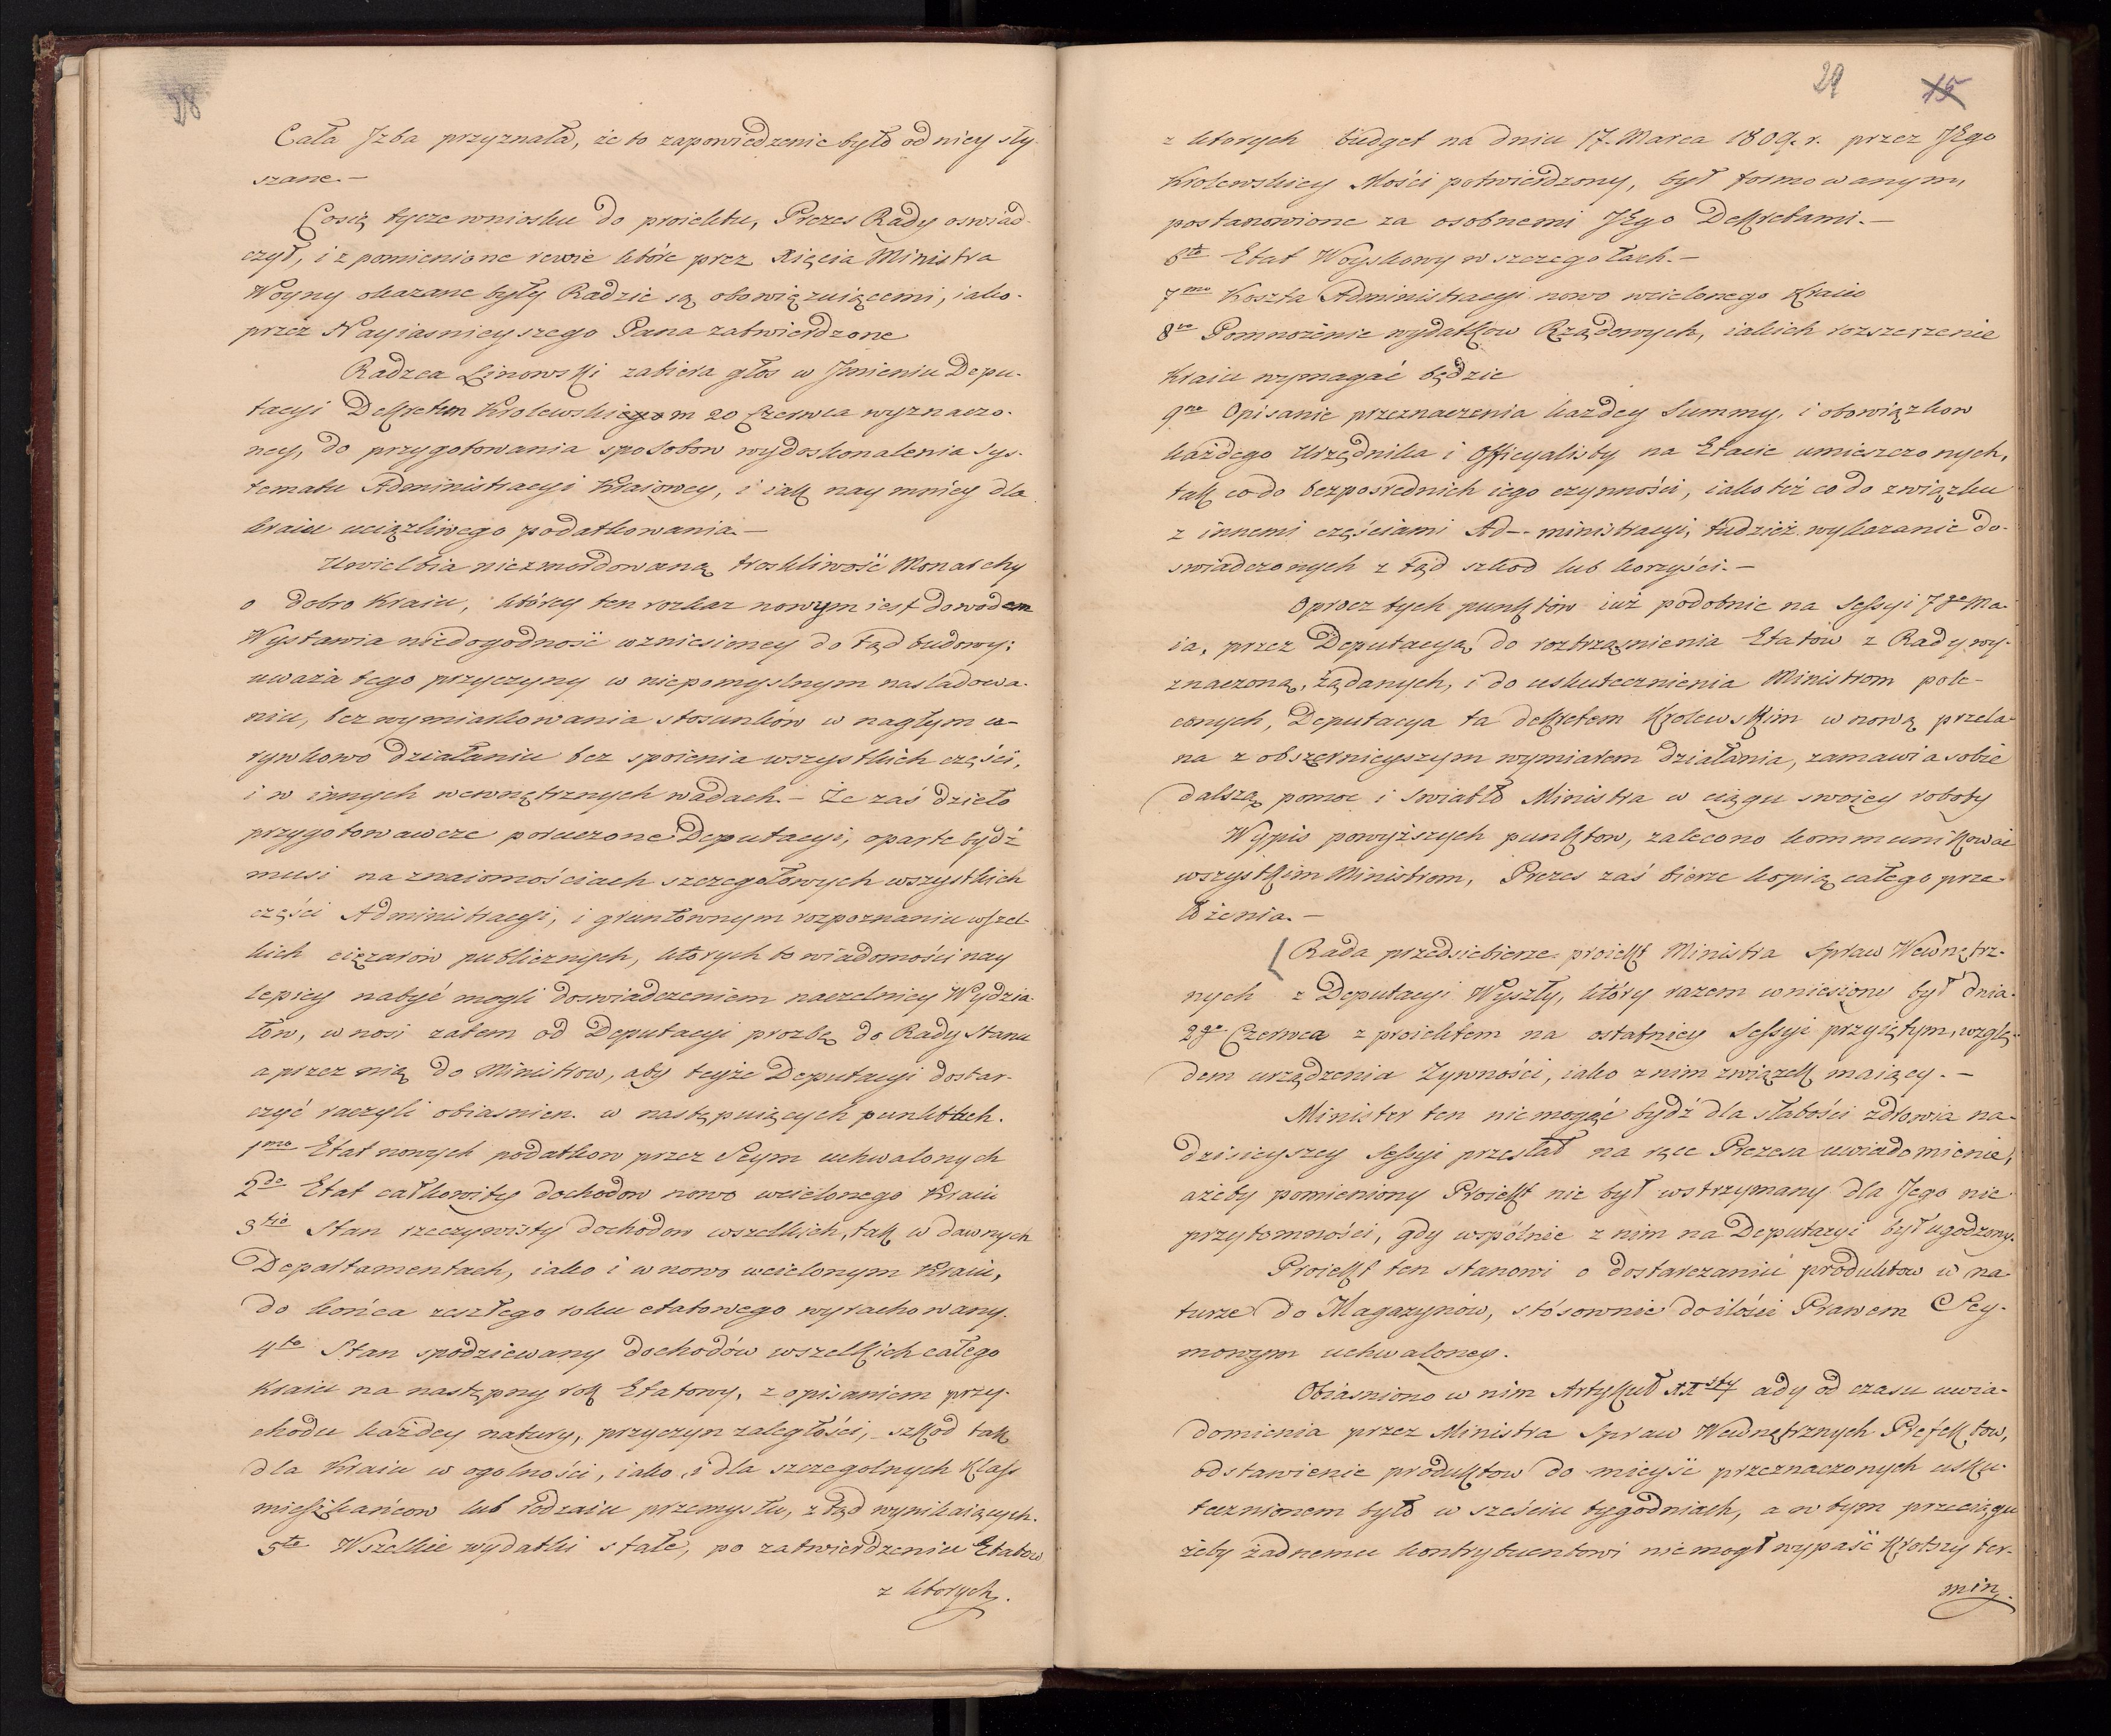 28
Cała Jzba przyznała, że to zapowiedzenie było od niey sły-
szane. —
Cosię tycze wniosku do proiektu, Prezes Rady oswiad-
czył, iż pomienione rewie które przez Xięcia Ministra
Woyny okazane były Radzie są obowiązuiącemi, iako-
przez Nayiasnieyszego Pana zatwierdzone
Radzca Linowski zabiera głos w Jmieniu Depu-
tacyi Dekretem Krolewskim 20 Czerwca wyznaczo-
ney, do przygotowania sposobow wydoskonalenia sys-
tematu Administracyi Kraiowey, i iak naymniey dla
kraiu uciążliwego podatkowania. —
Uwielbia niezmordowaną troskliwość Monarchy
o dobro Kraiu, którey ten rozkaz nowym iest dowodem
Wystawia niedogodność wzniesioney do tąd budowy;
uważa tego przyczyny w niepomyslnym nasladowa-
niu, bez wymiarkowania stosunków w nagłym u-
rywkowo działaniu bez spoienia wszystkich części,
i w innych wewnętrznych wadach. — Że zaś dzieło
przygotowawcze poruczone Deputacyi, oparte bydź
musi na znaiomościach szczegołowych wszystkich
części Administracyi, i gruntownym rozpoznaniu wszel-
kich ciężarów publicznych, ktorych to wiadomości nay
lepiey nabyć mogli doswiadczeniem naczelnicy Wydzia-
łów, wnosi zatem od Deputacyi prozbę do Rady Stanu
a przez nią do Ministrow, aby teyże Deputacyi dostar-
czyć raczyli obiasnien. w następuiących punktach.
1mo Etat nowych podatkow przez Seym uchwalonych
2do Etat całkowity dochodow nowo wcielonego Kraiu
3tio Stan rzeczywisty dochodow wszelkich, tak w dawnych
Departamentach, iako i w nowo wcielonym Kraiu,
do końca zeszłego roku etatowego wyrachowany.
4to Stan spodziewany dochodów wszelkich całego
Kraiu na następny rok Etatowy, z opisaniem przy-
chodu każdey natury, przyczyn zaległości, szkod tak
dla Kraiu w ogolności, iako i dla szczegolnych Klass
mieszkańcow lub rodzaiu przemysłu, z tąd wynikaiących.
5to Wszelkie wydatki stałe, po zatwierdzeniu Etatow
z ktorych.
29 15
z ktorych budget na dniu 17. Marca 1809. r. przez JEgo
Krolewskiey Mości potwierdzony, był formowanym,
postanowione za osobnemi JEgo Dekretami. —
6to Etat Woyskowy w szczegołach. —
7mo Koszta Administracyi nowo wcielonego Kraiu
8vo Pomnożenie wydatkow Rządowych, iakich rozszerzenie
Kraiu wymagać będzie
9no Opisanie przeznaczenia kazdey Summy, i obowiązkow
każdego Urzędnika i Officyalisty na Etacie umieszczonych,
tak co do bezposrednich iego czynności, iako też co do związku
z innemi częściami Ad-- ministracyi, tudzież wykazanie do-
swiadczonych z tąd szkod lub korzyści. —
Oprocz tych punktów iuż podobnie na Sessyi 7go Ma-
ia, przez Deputacyą do roztrząsnienia Etatów z Rady wy-
znaczoną, żądanych, i do uskutecznienia Ministrom pole-
conych, Deputacya ta dekretem Krolewskim w nową przela-
na z obszernieyszym wymiarem działania, zamawia sobie
dalszą pomoc i swiatło Ministra w ciągu swoiey roboty
Wypis powyższych punktow, zalecono kommunikować
wszystkim Ministrom, Prezes zaś bierze kopią całego prze
łożenia. —
Rada przedsiebierze proiekt Ministra Spraw Wewnętrz-
nych z Deputacyi Wyszły, który razem wniesiony był dnia
2go Czerwca z proiektem na ostatniey Sessyi przyiętym, wzglę-
dem urządzenia Zywności, iako z nim związek maiący. —
Minister ten niemogąc bydź dla słabości zdrowia na
dzisieyszey Sessyi przesłał na ręce Prezesa uwiadomienie,
ażeby pomieniony Proiekt nie był wstrzymany dla Jego nie
przytomności, gdy wspólnie z nim na Deputacyi był ugodzony.
Proiekt ten stanowi o dostarczaniu produktow w na-
turze do Magazynów, stósownie do ilości Prawem Sey-
mowym uchwaloney.
Obiasniono w nim Artykuł ady od czasu uwia-
domienia przez Ministra Spraw Wewnętrznych Prefektow,
odstawienie produktow do mieysć przeznaczonych usku-
tecznionem było w sześciu tygodniach, a w tym przeciągu
żeby żadnemu kontrybuentowi niemogł wypaść krotszy ter-
min.